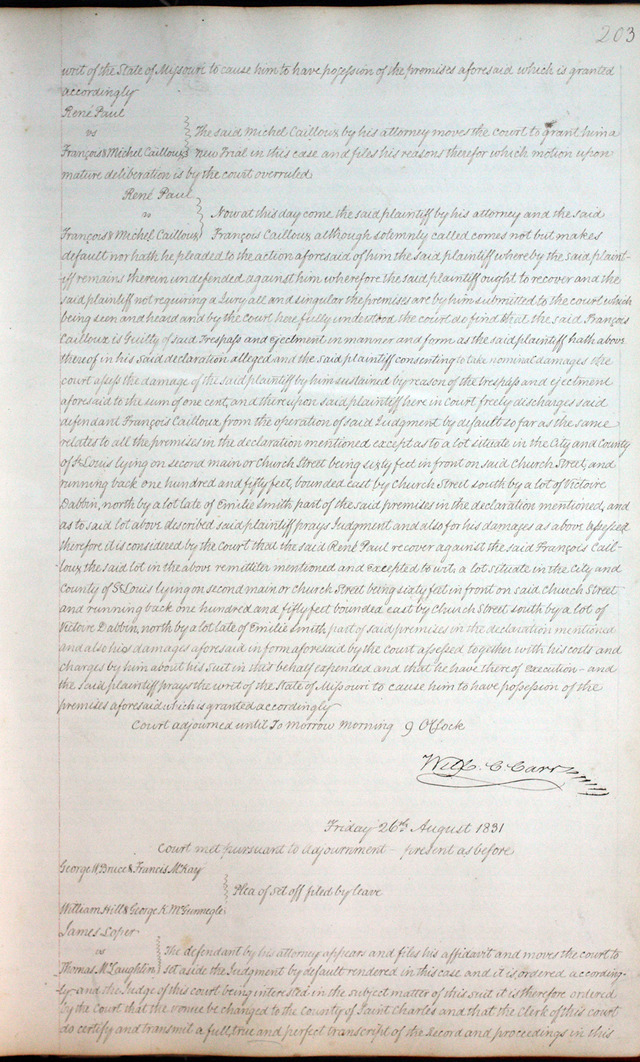 203
writ of the State of Missouri to cause him to have posession of the premises aforesaid which is granted
accordingly
René Paul
vs The said Michel Cailloux by his attorney moves the court to grant him a
François & Michel Cailloux New Trial in this case and files his reasons therefor which motion upon
mature deliberation is by the court overruled
René Paul
vs Now at this day come the said plaintiff by his attorney and the said
François & Michel Cailloux François Cailloux although solemnly called comes not but makes
default nor hath he pleaded to the action aforesaid of him the said plaintiff whereby the said plaint-
iff remains therein undefended against him wherefore the said plaintiff ought to recover and the
said plaintiff not requiring a Jury all and singular the premises are by him submitted to the court which
being seen and heard and by the Court here fully understood the court do find that the said François
Cailloux is Guilty of said Trespass and ejectment in manner and form as the said plaintiff hath above
thereof in his said declaration alleged and the said plaintiff consenting to take nominal damages the
court assess the damage of the said plaintiff by him sustained by reason of the trespass and ejectment
aforesaid to the sum of one cent, and thereupon said plaintiff here in Court freely discharges said
defendant François Cailloux from the operation of said Judgment by default so far as the same
relates to all the premises in the declaration mentioned except as to a lot situate in the City and County
of St Louis lying on second main or Church Street being sixty feet in front on said Church Street, and
running back one hundred and fifty feet, bounded east by Church Street south by a lot of Victoire
Dabbin, north by a lot late of Emilie Smith part of the said premises in the declaration mentioned, and
as to said lot above described said plaintiff prays Judgment and also for his damages as above assessed
therefore it is considered by the Court that the said René Paul recover against the said François Cail-
loux the said lot in the above remittiter mentioned and Excepted to wit a lot situate in the City and
County of St Louis lying on second main or Church Street being sixty feet in front on said Church Street
and running back one hundred and fifty feet bounded east by Church Street south by a lot of
Victoire Dabbin, north by a lot late of Emilie Smith part of said premises in the declaration mentioned
and also his damages aforesaid in form aforesaid by the court assessed together with his costs and
charges by him about his suit in this behalf expended and that he have thereof Execution - and
the said plaintiff prays the writ of the State of Missouri to cause him to have possession of the
premises aforesaid which is granted accordingly
Court adjourned until To Morrow Morning 9 O'Clock
Wm. C. Carr
Friday 26th August 1831
Court met pursuant to adjournment - present as before
George W Bruce & Francis McKay
Plea of set off filed by leave
William Hill & George K McGunnegle
James Loper
vs The defendant by his attorney appears and files his affidavit and moves the court to
Thomas McLaughlin set aside the Judgment by default rendered in this case and it is ordered according-
ly and the Judge of this court being interested in the subject matter of this suit it is therefore ordered
by the Court that the venue be changed to the County of Saint Charles and that the Clerk of this court
do certify and transmit a full, true and perfect transcript of the Record and proceedings in this